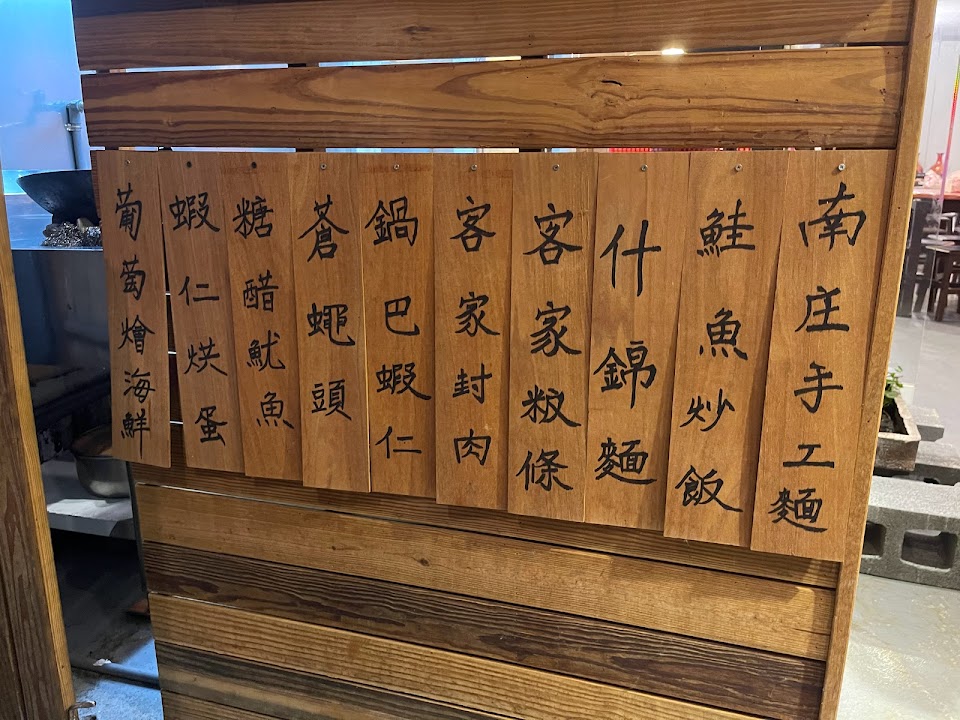 南庄手工麵
鮭魚炒飯
什錦麵
客家粄條
客家封肉
鍋巴蝦仁
蒼蠅頭
糖醋魷魚
蝦仁烘蛋
葡萄燴海鮮